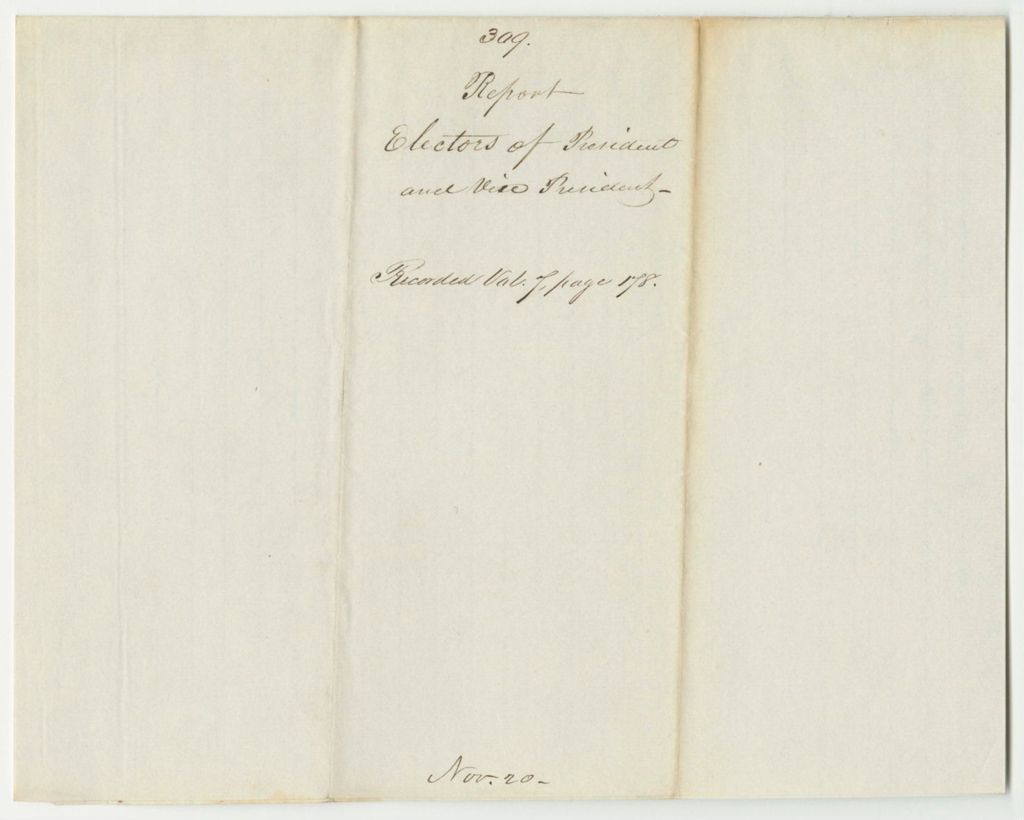 309.
Report
Electors of President
and Vice President-
Recorded Vol. 7, page 178.
Nov. 20-